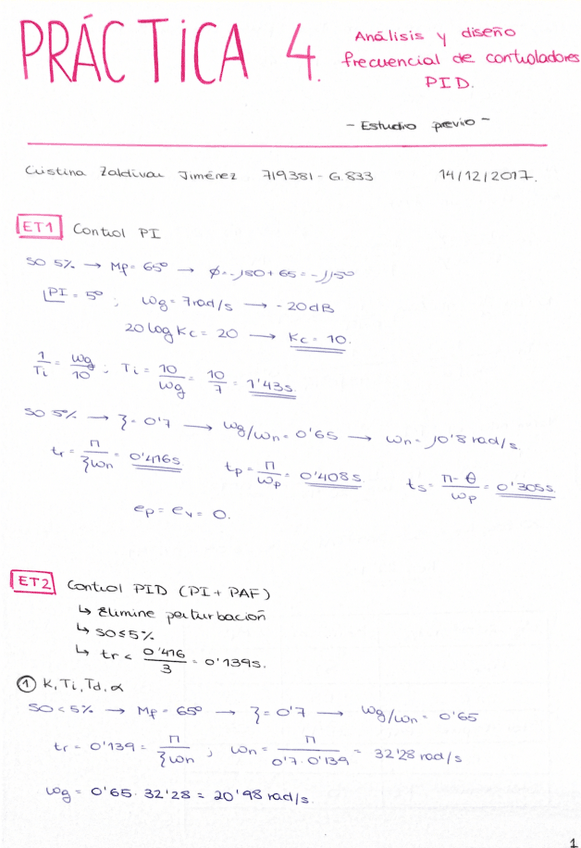 PRÁCTICA 4.
Análisis y diseño
frecuencial de controladores
PID.
- Estudio previo -
Cristina Zaldívar Jiménez 719381 - G.833 14/12/2017.
ET1 Control PI
SO 5% → Mf = 65º → φ = -180 + 65 = -115º
∠PI = 5º ; ωg = 7 rad/s → -20 dB
20 log Kc = 20 → Kc = 10.
1/Ti = ωg/10 ; Ti = 10/ωg = 10/7 = 1'43s.
SO 5% → ξ = 0'7 → ωg/ωn = 0'65 → ωn = 10'8 rad/s.
tr = π/ξωn = 0'416s. tp = π/ωp = 0'408s. ts = π-θ/ωp = 0'305s.
ep = ev = 0.
ET2 Control PID (PI + PAF)
↳ Elimine perturbación
↳ SO ≤ 5%
↳ tr < 0'416/3 = 0'139s.
① K, Ti, Td, α
SO < 5% → Mf = 65º → ξ = 0'7 → ωg/ωn = 0'65
tr = 0'139 = π/ξωn ; ωn = π/0'7·0'139 = 32'28 rad/s
ωg = 0'65 · 32'28 = 20'98 rad/s.
1